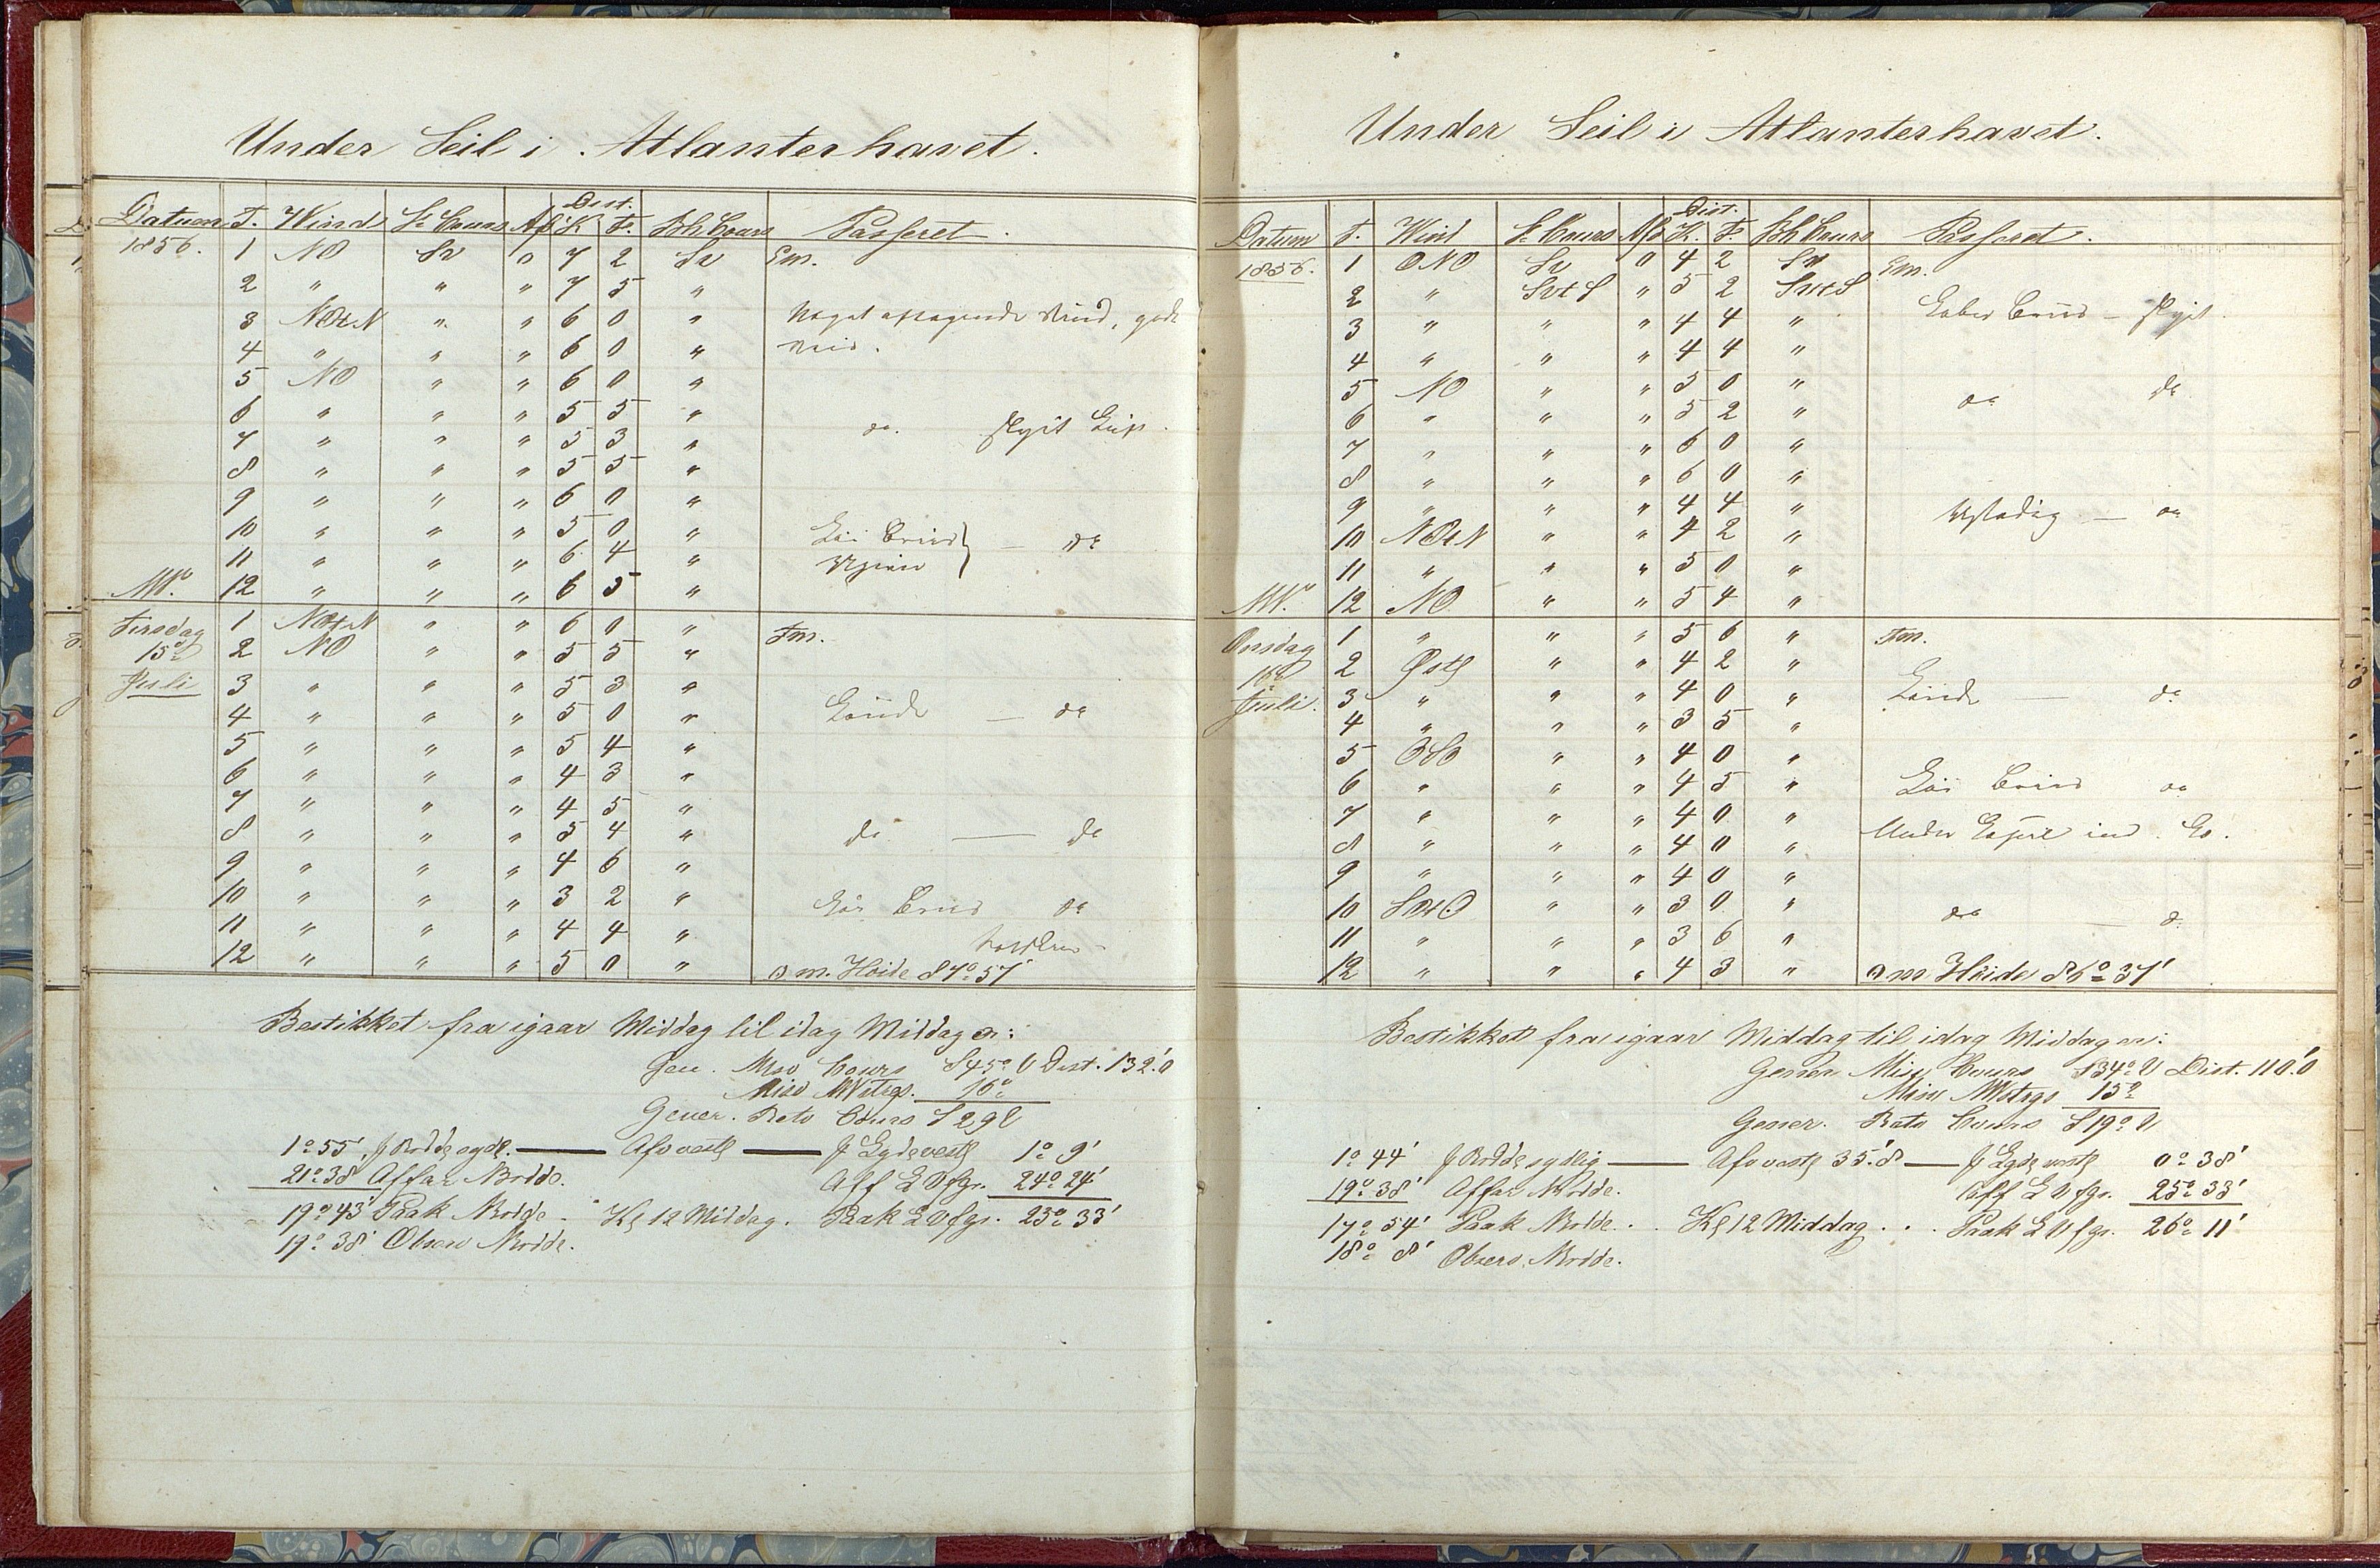 Under Seil i Atlanterhavet.
Datum T. Wind St Cours Afd Dist. K. F. Bh Cours Passeret.
1856. 1 NO Sv 0 7 2 Sv Em.
2 " " " 7 5 "
3 NOtN " " 6 0 " Noget aftagende Vind, gode
4 " " " 6 0 "
5 NO " " 6 0 "
6 " " " 5 5 "
7 " " " 5 3 " do. skyet Luft.
8 " " " 5 5 "
9 " " " 6 0 "
10 " " " 5 0 " — do
11 " " " 6 4 "
MN. 12 " " " 6 5 "
Tirsdag 1 NOtN " " 6 0 " Fm.
15d 2 NO " " 5 5 "
Juli 3 " " " 5 3 "
4 " " " 5 0 " — do
5 " " " 5 4 "
6 " " " 4 3 "
7 " " " 4 5 "
8 " " " 5 4 " do — do
9 " " " 4 6 "
10 " " " 3 2 " do
11 " " " 4 4 "
12 " " " 5 0 " m. Höide 87° 57'
Bestikket fra igaar Middag til idag Middag er:
Gen. Misv Cours S45° V Dist. 132'.0
Misv NVstrgs. 16°
Gener. Retv Cours S 29 V
1° 55' f Brdde sydl. — Afv vestl — f Lgde vestl 1° 9'
21° 38' Affar Brdde. Aff L V fgr. 24° 24'
19° 43' Paak Brdde. Kl 12 Middag. Paak L V fgr. 25° 33'
19° 38' Observ Brdde.
Under Seil i Atlanterhavet.
Datum T. Wind St Cours Afd Dist. K. F. Bh Cours Passeret.
1856. 1 ONO Sv 0 4 2 Sv Em.
2 " SvtS " 5 2 SvtS
3 " " " 4 4 " Laber — skyet.
4 " " " 4 4 "
5 NO " " 5 0 "
6 " " " 5 2 " do do
7 " " " 6 0 "
8 " " " 6 0 "
9 " " " 4 4 "
10 NOtN " " 4 2 " Ustadig — do
11 " " " 5 0 "
MN. 12 NO " " 5 4 "
Onsdag 1 " " " 5 6 " Fm.
16d 2 Østl " " 4 2 "
Juli. 3 " " " 4 0 " — do
4 " " " 3 5 "
5 OSO " " 4 0 "
6 " " " 4 5 " do
7 " " " 4 0 "
8 " " " 4 0 " Under
9 " " " 4 0 "
10 SOtO " " 3 0 "
11 " " " 3 6 " do — do
12 " " " 4 3 " m Höide 86° 37'
Bestikket fra igaar Middag til idag Middag er:
Gener Misv Cours S34° V Dist. 110'.0
Misv NVstrgs 15°
Gener. Retv Cours S19° V
1° 44' f Brdde sydlig — Afv vestl 35'.8 — f Lgde vestl 0° 38'
19° 38' Affar Brdde. Aff L V fgr. 25° 33'
17° 54' Paak Brdde. . Kl 12 Middag . . Paak L V fgr. 26° 11'
18° 8' Observ. Brdde.